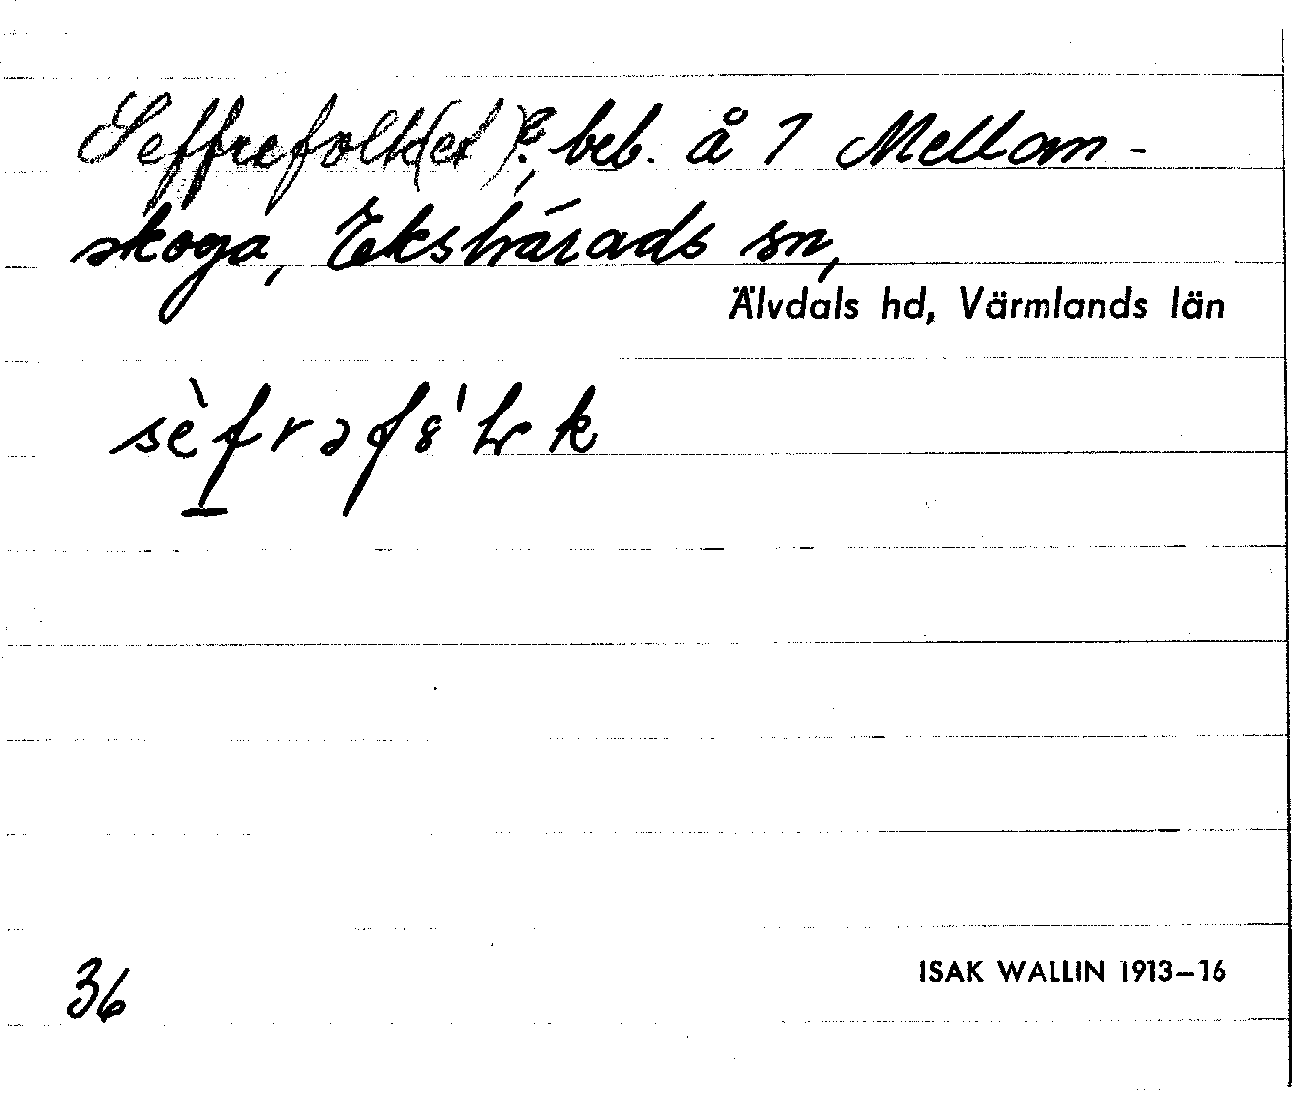 Seffrefolk(et)?, beb. å 1 Mellan-
skoga, Ekshärads sn,
Älvdals hd, Värmlands län
sèfrəf8'lrk
36
ISAK WALLIN 1913–16